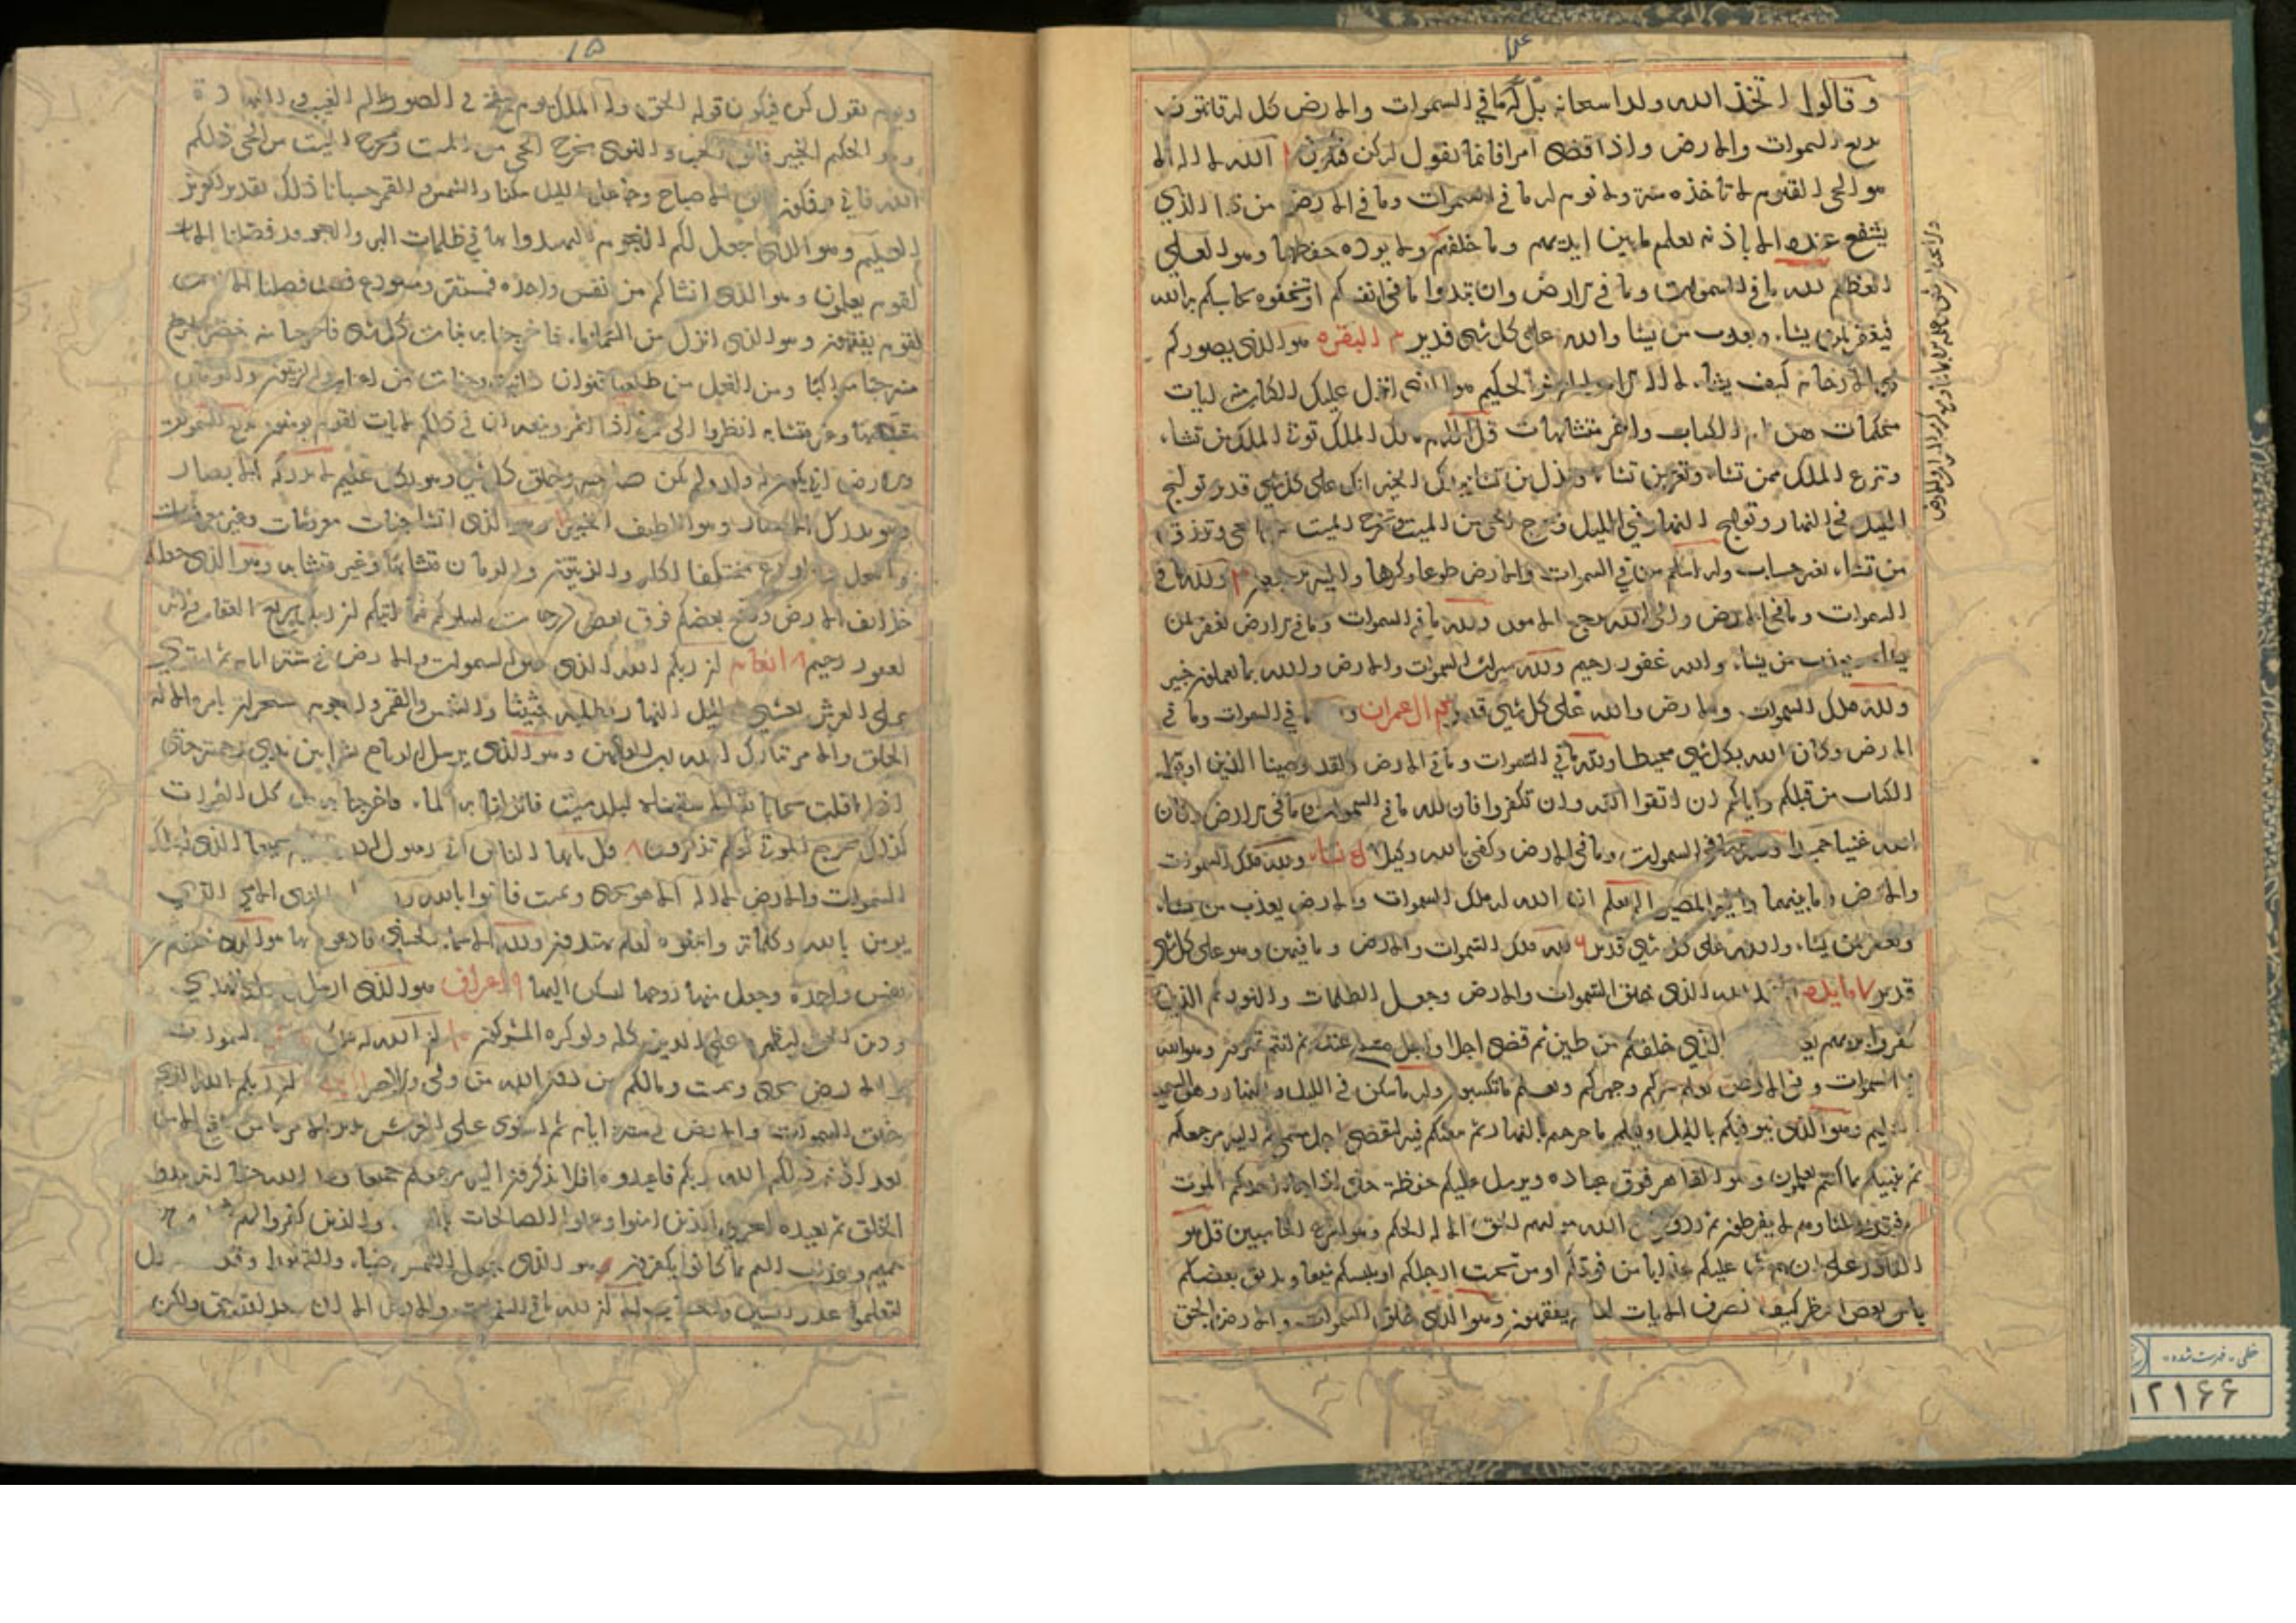 وقالوا اتخذ الله ولدا سبحانه بل له ما في السموات والارض كل له قانتون
بديع السموات والارض واذا قضى امرا فانما يقول له كن فيكون الله لا اله الا
هو الحي القيوم لا تاخذه سنة ولا نوم له ما في السموات وما في الارض من ذا الذي
يشفع عنده الا باذنه يعلم ما بين ايديهم وما خلفهم ولا يوده حفظهما وهو العلي
العظيم لله ما في السموات وما في الارض وان تبدوا ما في انفسكم او تخفوه يحاسبكم به الله
فيغفر لمن يشاء ويعذب من يشا والله على كل شي قدير البقره هو الذي يصوركم
في الارحام كيف يشاء لا اله الا هو العزيز الحكيم هو الذي انزل عليك الكتاب منه ايات
محكمات هن ام الكتاب واخر متشابهات قل اللهم مالك الملك توتي الملك من تشاء
وتنزع الملك ممن تشاء وتعز من تشاء وتذل من تشا بيدك الخير انك على كل شي قدير تولج
الليل في النهار وتولج النهار في الليل وتخرج الحي من الميت وتخرج الميت من الحي وترزق
من تشاء بغير حساب وله اسلم من في السموات والارض طوعا وكرها واليه يرجعون ولله ما في
السموات وما في الارض والى الله ترجع الامور ولله ما في السموات وما في الارض يغفر لمن
يشاء ويعذب من يشاء والله غفور رحيم ولله ميراث السموات والارض والله بما تعملون خبير
ولله ملك السموات والارض والله على كل شي قدير ال عمران ما في السموات وما في
الارض وكان الله بكل شي محيطا ولله ما في السموات وما في الارض ولقد وصينا الذين اوتوا
الكتاب من قبلكم واياكم ان اتقوا الله وان تكفروا فان لله ما في السموات وما في الارض وكان
الله غنيا حميدا ولله ما في السموات وما في الارض وكفى بالله وكيلا نساء ولله ملك السموات
والارض وما بينهما واليه المصير الم تعلم ان الله له ملك السموات والارض يعذب من يشاء
ويغفر لمن يشاء والله على كل شي قدير لله ملك السموات والارض وما فيهن وهو على كل شي
قدير مايده الحمد لله الذي خلق السموات والارض وجعل الظلمات والنور ثم الذين
كفروا بربهم الذي خلقكم من طين ثم قضى اجلا واجل مسمى عنده ثم انتم تمترون وهو الله
في السموات وفي الارض يعلم سركم وجهركم ويعلم ما تكسبون وله ما سكن في الليل والنهار وهو السميع
العليم وهو الذي يتوفيكم بالليل ويعلم ما جرحتم بالنهار ثم يبعثكم فيه ليقضى اجل مسمى ثم اليه مرجعكم
ثم ينبيكم بما كنتم تعملون وهو القاهر فوق عباده ويرسل عليكم حفظة حتى اذا جاء احدكم الموت
توفته رسلنا وهم لا يفرطون ثم ردوا الى الله موليهم الحق الا له الحكم وهو اسرع الحاسبين قل هو
القادر على ان يبعث عليكم عذابا من فوقكم او من تحت ارجلكم او يلبسكم شيعا ويذيق بعضكم
باس بعض انظر كيف نصرف الايات لعلهم يفقهون وهو الذي خلق السموات والارض بالحق
۱۵
ويوم يقول كن فيكون قوله الحق وله الملك يوم ينفخ في الصور عالم الغيب والشهادة
وهو الحكيم الخبير فالق الحب والنوى يخرج الحي من الميت ومخرج الميت من الحي ذلكم
الله فانى توفكون فالق الاصباح وجاعل الليل سكنا والشمس والقمر حسبانا ذلك تقدير العزيز
العليم وهو الذي جعل لكم النجوم لتهتدوا بها في ظلمات البر والبحر قد فصلنا الايات
لقوم يعلمون وهو الذي انشاكم من نفس واحده فمستقر ومستودع قد فصلنا الايات
لقوم يفقهون وهو الذي انزل من السماء ماء فاخرجنا به نبات كل شي فاخرجنا منه خضرا نخرج
منه حبا متراكبا ومن النخل من طلعها قنوان دانية وجنات من اعناب والزيتون والرمان
مشتبها وغير متشابه انظروا الى ثمره اذا اثمر وينعه ان في ذلكم لايات لقوم يومنون بديع السموات
والارض انى يكون له ولد ولم تكن له صاحبه وخلق كل شي وهو بكل شي عليم لا تدركه الابصار
وهو يدرك الابصار وهو اللطيف الخبير وهو الذي انشا جنات معروشات وغير معروشات
والنخل والزرع مختلفا اكله والزيتون والرمان متشابها وغير متشابه وهو الذي جعلكم
خلائف الارض ورفع بعضكم فوق بعض درجات ليبلوكم فيما اتيكم ان ربك سريع العقاب وانه
لغفور رحيم انعام ان ربكم الله الذي خلق السموات والارض في ستة ايام ثم استوى
على العرش يغشي الليل النهار يطلبه حثيثا والشمس والقمر والنجوم مسخرات بامره الا له
الخلق والامر تبارك الله رب العالمين وهو الذي يرسل الرياح بشرا بين يدي رحمته حتى
اذا اقلت سحابا ثقالا سقناه لبلد ميت فانزلنا به الماء فاخرجنا به من كل الثمرات
كذلك نخرج الموتى لعلكم تذكرون قل يا ايها الناس اني رسول الله اليكم جميعا الذي له ملك
السموات والارض لا اله الا هو يحيي ويميت فامنوا بالله ورسوله النبي الامي الذي
يومن بالله وكلماته واتبعوه لعلكم تهتدون ولله الاسماء الحسنى فادعوه بها هو الذي خلقكم من
نفس واحدة وجعل منها زوجها ليسكن اليها اعراف هو الذي ارسل رسوله بالهدى
ودين الحق ليظهره على الدين كله ولو كره المشركون ان الله له ملك السموات
والارض يحيي ويميت ومالكم من دون الله من ولي ولا نصير ان ربكم الله الذي
خلق السموات والارض في ستة ايام ثم استوى على العرش يدبر الامر ما من شفيع الا من
بعد اذنه ذلكم الله ربكم فاعبدوه افلا تذكرون اليه مرجعكم جميعا وعد الله حقا انه يبدو
الخلق ثم يعيده ليجزي الذين امنوا وعملوا الصالحات بالقسط والذين كفروا لهم شراب من
حميم وعذاب اليم بما كانوا يكفرون هو الذي جعل الشمس ضياء والقمر نورا وقدره منازل
لتعلموا عدد السنين والحساب الا ان لله ما في السموات والارض الا ان وعد الله حق ولكن
خطى - فهرست شده
۱۲۱۶۶